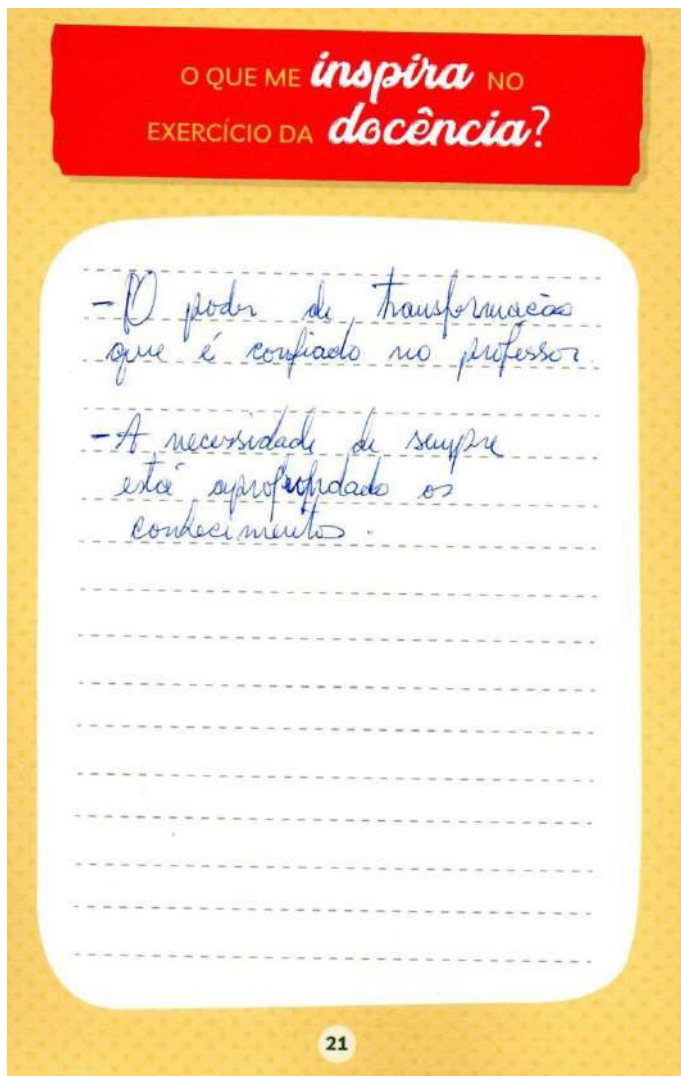 O QUE ME inspira NO
EXERCÍCIO DA docência?
- O poder de transformação
que é confiado no professor.
- A necessidade de sempre
está os
conhecimentos.
21